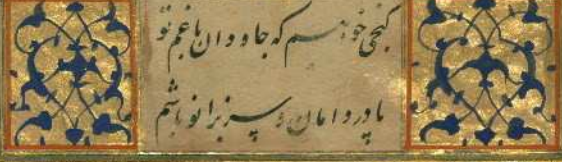 کنجی خواهم که جاودان با غم تو
پا در دامان و سر بزانو باشم